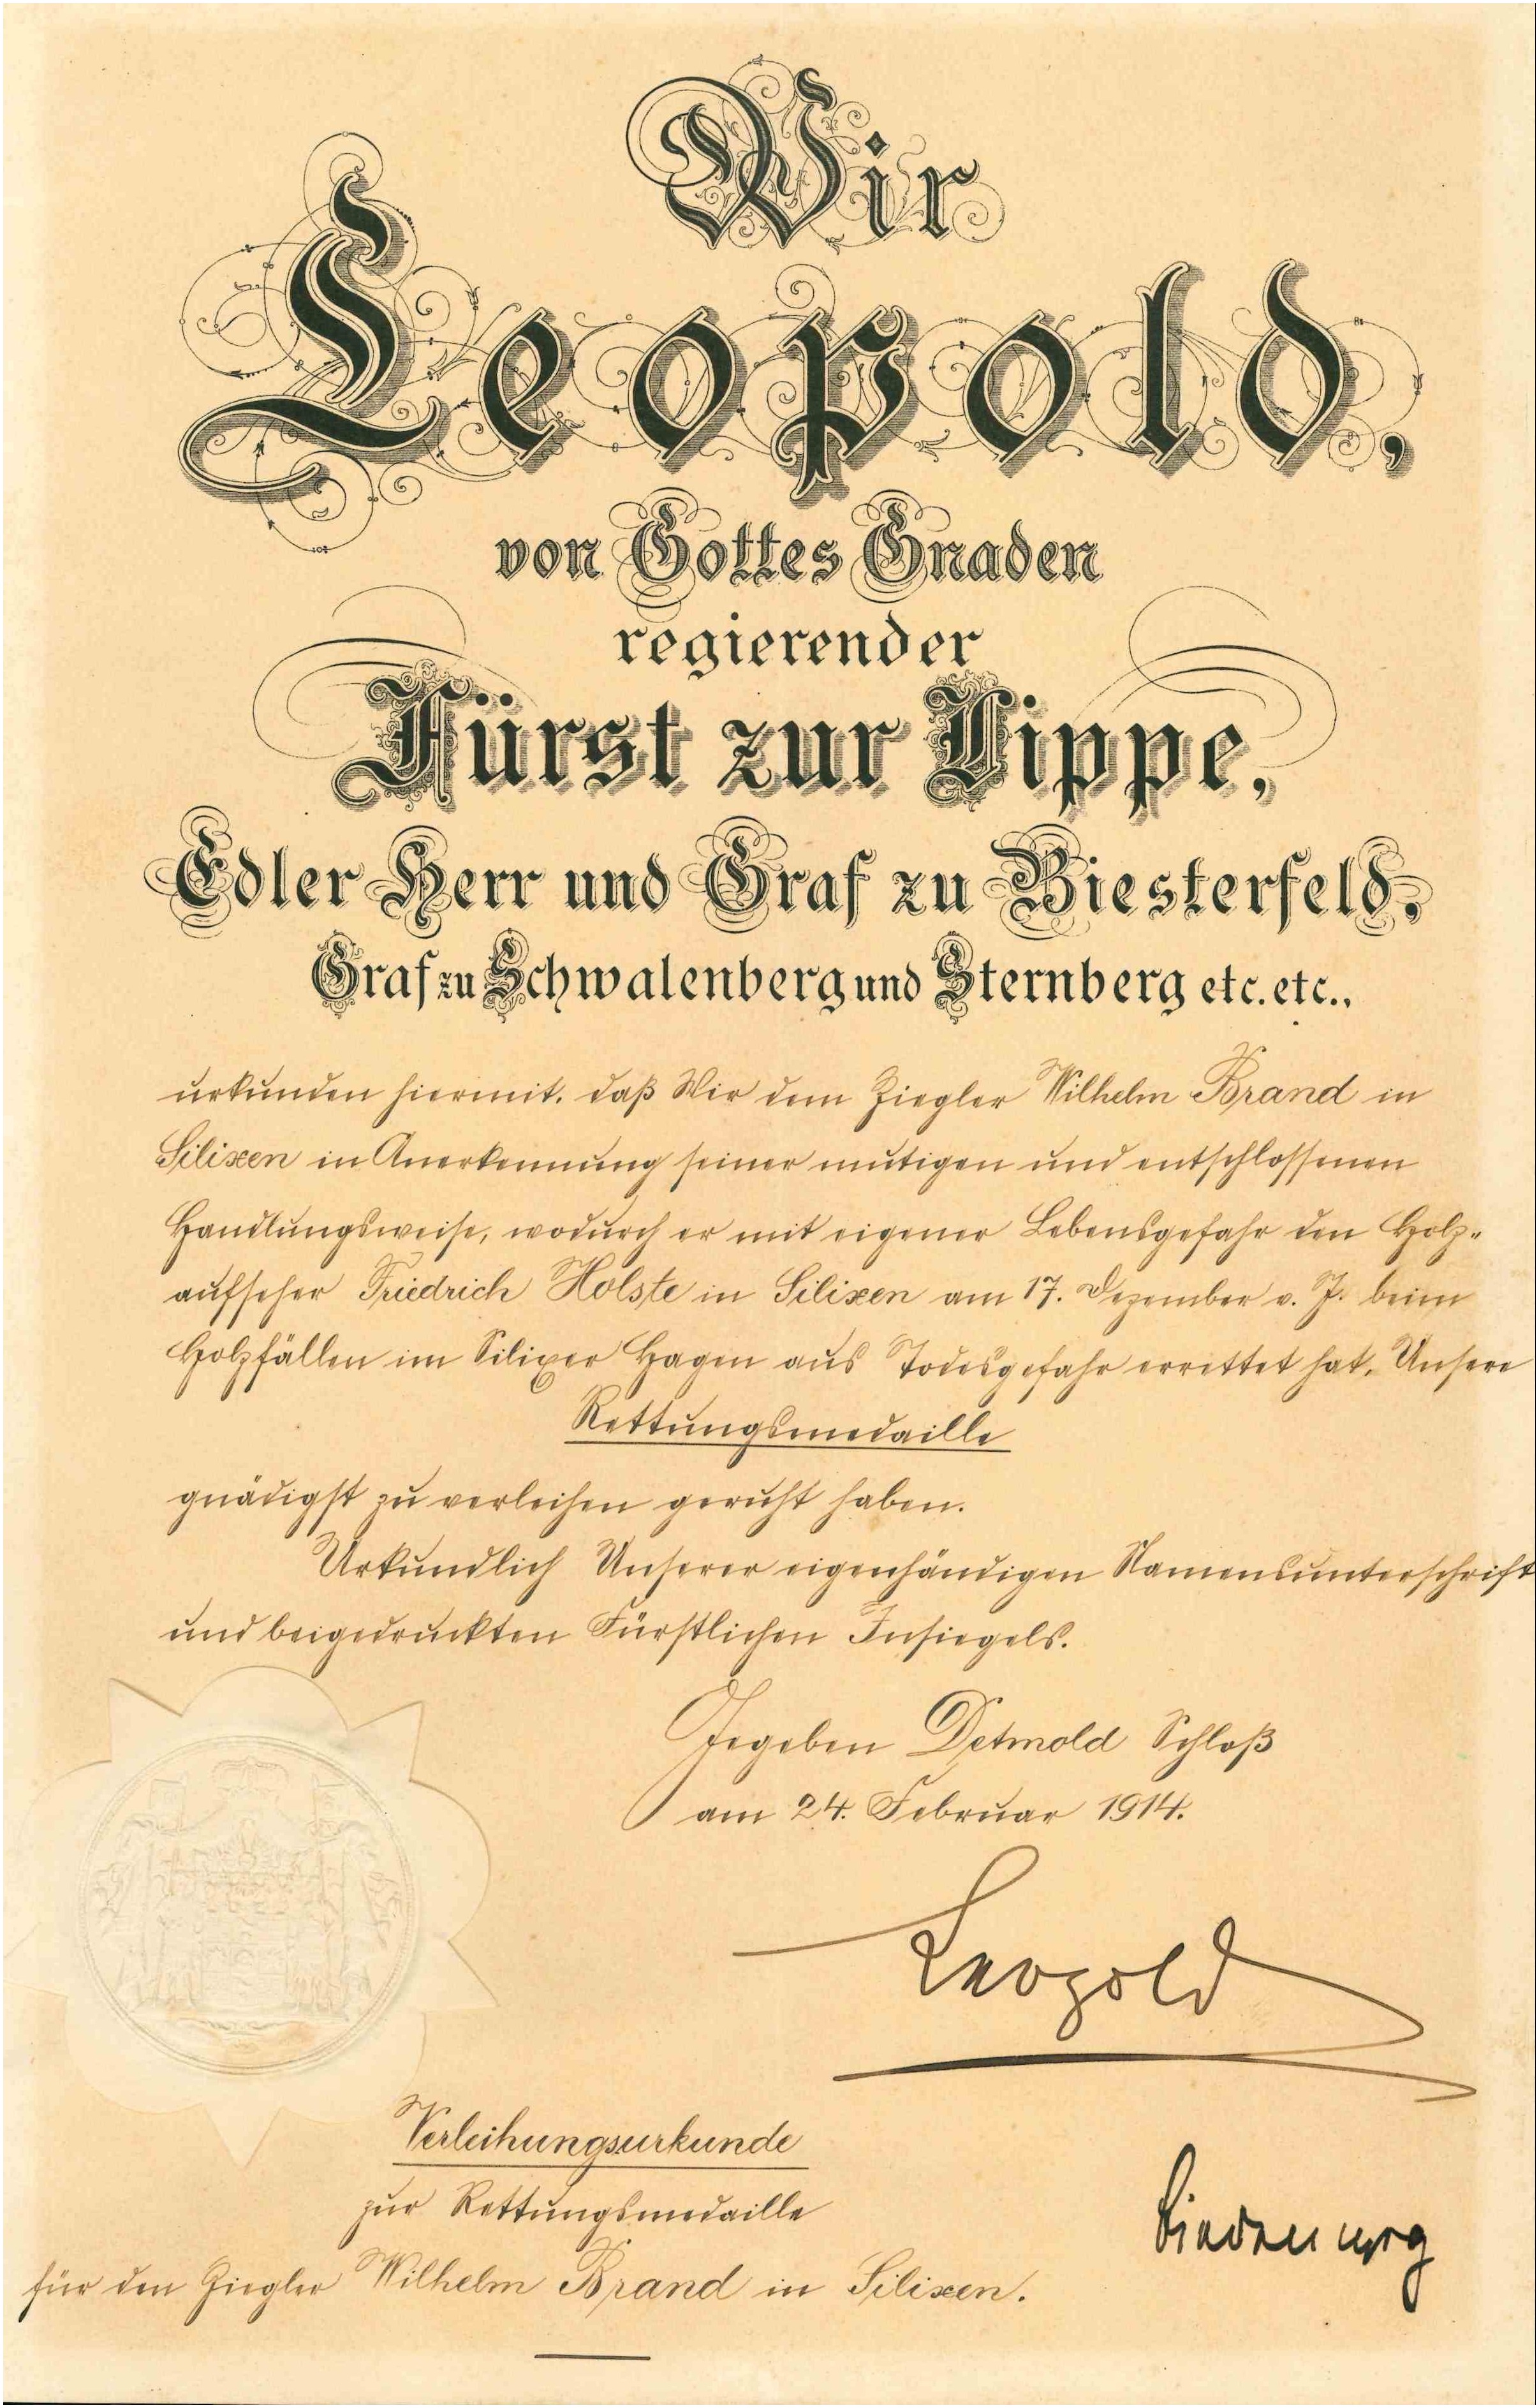 Wir
Leopold,
von Gottes Gnaden
regierender
Fürst zur Lippe,
Edler Herr und Graf zu Biesterfeld,
Graf zu Schwalenberg und Sternberg etc. etc.,
urkunden hiermit, daß Wir dem Ziegler Wilhelm Brand in
Silixen in Anerkennung seiner mutigen und entschlossenen
Handlungsweise, wodurch er mit eigener Lebensgefahr den Holz-
aufseher Friedrich Holste in Silixen am 17. Dezember v. J. beim
Holzfällen im Silixer Hagen aus Todesgefahr errettet hat, Unsere
Rettungsmedaille
gnädigst zu verleihen geruht haben.
Urkundlich Unserer eigenhändigen Namensunterschrift
und beigedruckten Fürstlichen Insiegels.
Gegeben Detmold Schloß
am 24. Februar 1914.
Leopold
Verleihungsurkunde
zur Rettungsmedaille
für den Ziegler Wilhelm Brand in Silixen.